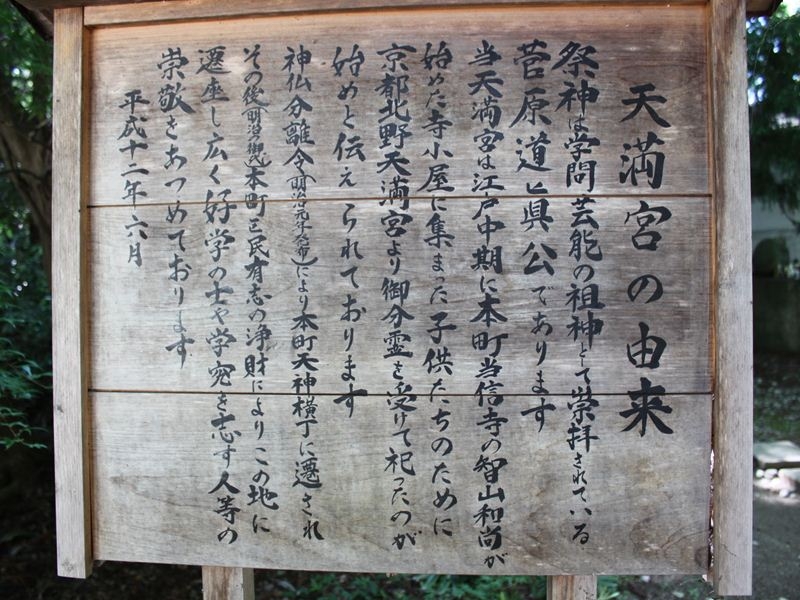 天満宮の由来
祭神は学問芸能の祖神として崇拝されている
菅原道真公であります
当天満宮は江戸中期に本町当信寺の智山和尚が
始めた寺小屋に集まった子供たちのために
京都北野天満宮より御分霊を受けて祀ったのが
始めと伝えられております
神仏分離令(明治元年発布)により本町天神横丁に遷され
その後(明治御代)本町区民有志の浄財によりこの地に
遷座し広く好学の士や学究を志す人等の
崇敬をあつめております
平成十一年六月